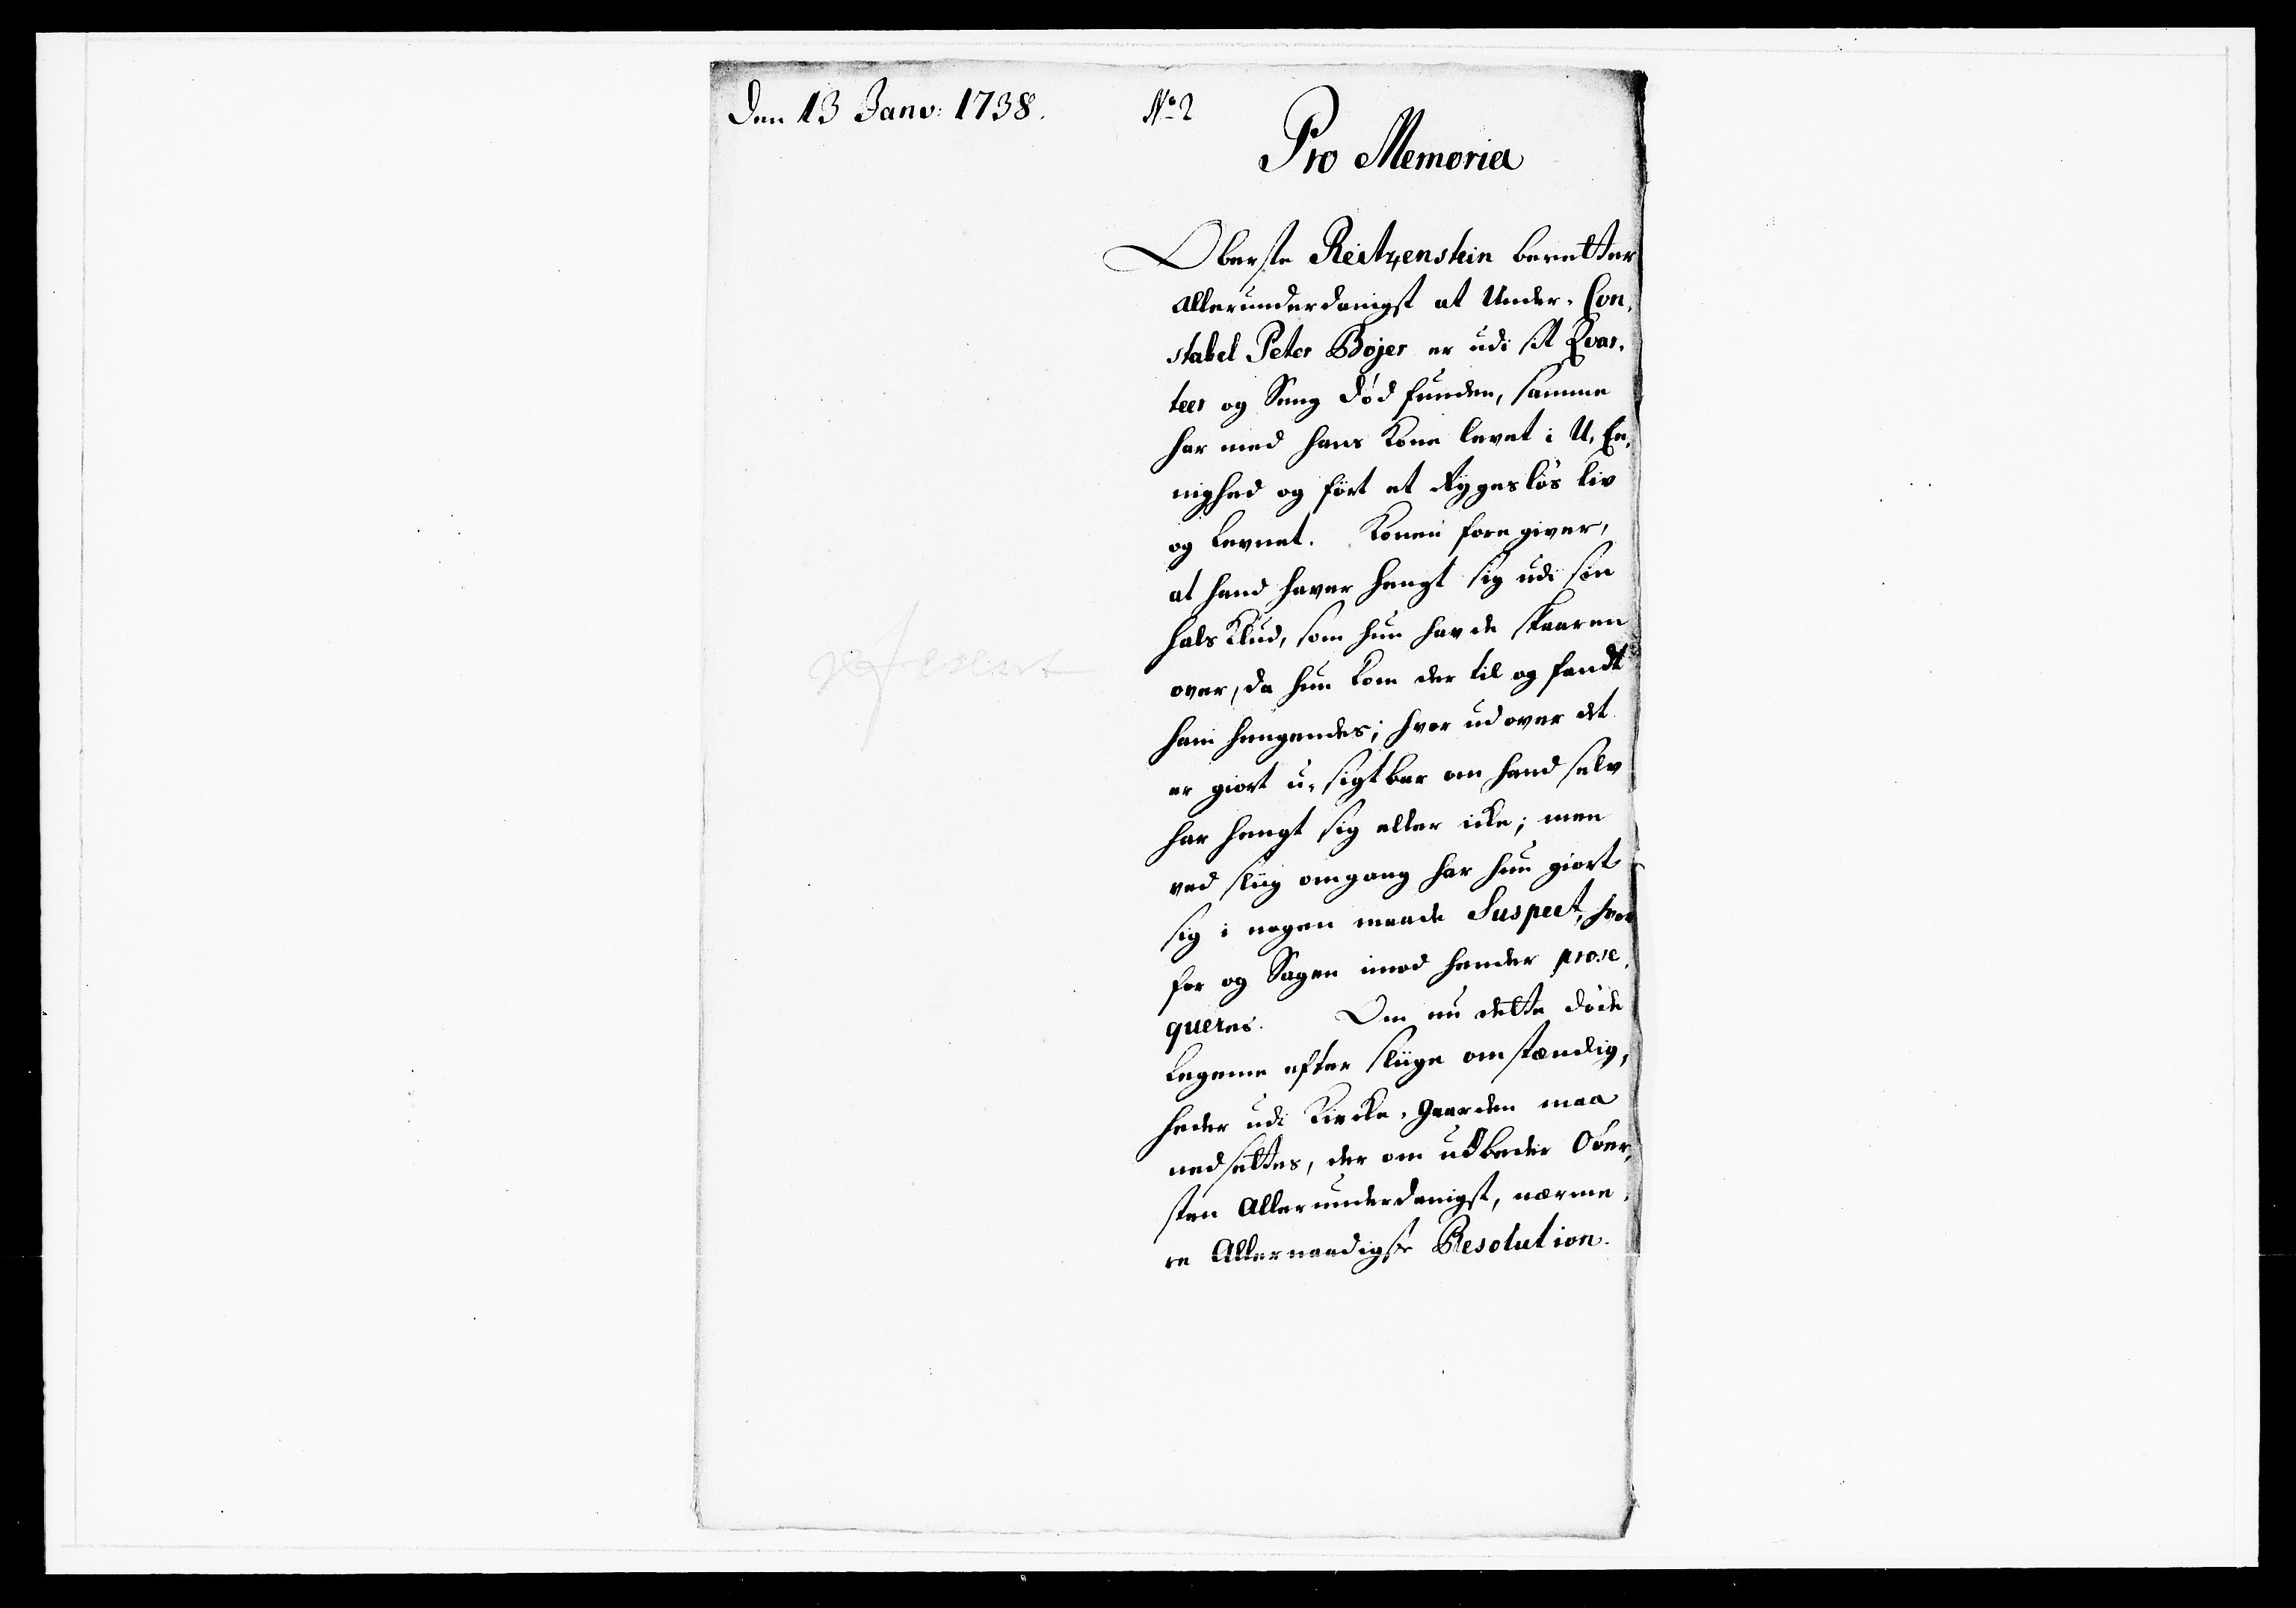 Den 13 Janv: 1738.
No 2
Pro Memoria
Oberste Reitzenstein beretter
Allerunderdanigst at Under-Con-
stabel Peter Bojer er udi sit Qvar-
teer og Seng død funden, samme
har med hans Kone levet i U-En-
nighed og ført et Rygesløs liv
og Levnet. Konen foregiver,
at hand haver hengt sig udi sin
hals Klud, som hun havde skaaren
over, da hun kom der til og fandt
ham hengendes; hvor udover det
er giort u-sigtbar om hand selv
har hengt sig eller icke; men
ved sliig omgang har hun giort
sig i nogen maade Suspect, hvor
for og Sagen imod hender prose-
queres. Om nu dette døde
Legeme efter sliige omstændig-
heder udi Kircke-Gaarden maa
nedsettes, der om udbeder Ober-
sten Allerunderdanigst, nærme-
re Allernaadigste Resolution.